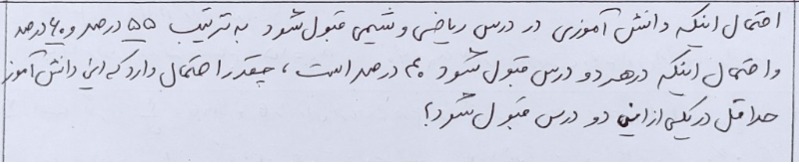 احتمال اینکه دانش آموزی در درس ریاضی و شیمی قبول شود به ترتیب ۵۵ درصد و ۶۰ درصد
و احتمال اینکه در هر دو درس قبول شود ۴۰ درصد است، چقدر احتمال دارد که این دانش آموز
حداقل در یکی از این دو درس قبول شود؟